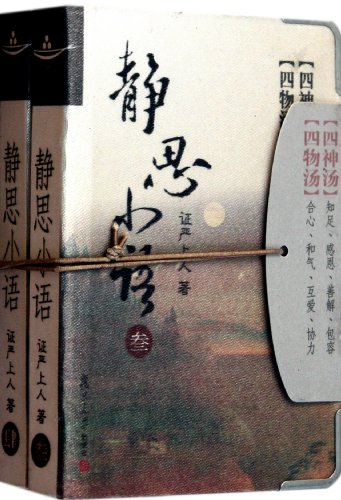 静思小语
证严上人 著
肆
静思小语
证严上人 著
叁
静思小语
证严上人 著
叁
【四神汤】
【四物汤】
【四神汤】知足、感恩、善解、包容
【四物汤】合心、和气、互爱、协力